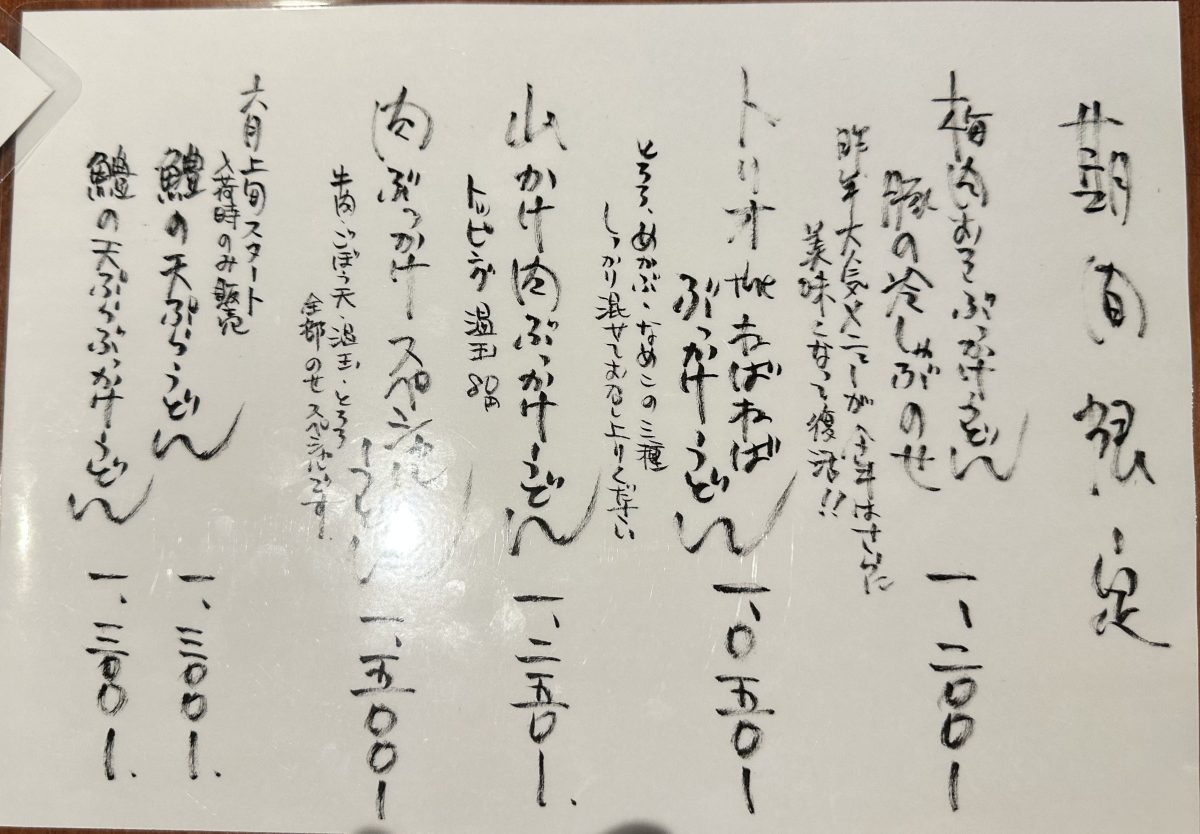 期間限定
梅肉おろしぶっかけうどん
豚の冷しゃぶのせ 一、二〇〇ー
昨年大人気メニューが今年はさらに
美味になって復活!!
トリオ the ねばねば
ぶっかけうどん 一、〇五〇ー
とろろ、めかぶ、なめこの三種
しっかり混ぜてお召し上りください
山かけ肉ぶっかけうどん 一、二五〇ー.
トッピング 温玉 80円
肉ぶっかけスペシャル
うどん 一、五〇〇ー
牛肉・ごぼう天・温玉・とろろ
全部のせスペシャルです。
六月上旬スタート
入荷時のみ販売
鱧の天ぷらうどん 一、三〇〇ー.
鱧の天ぷらぶっかけうどん 一、三〇〇ー.